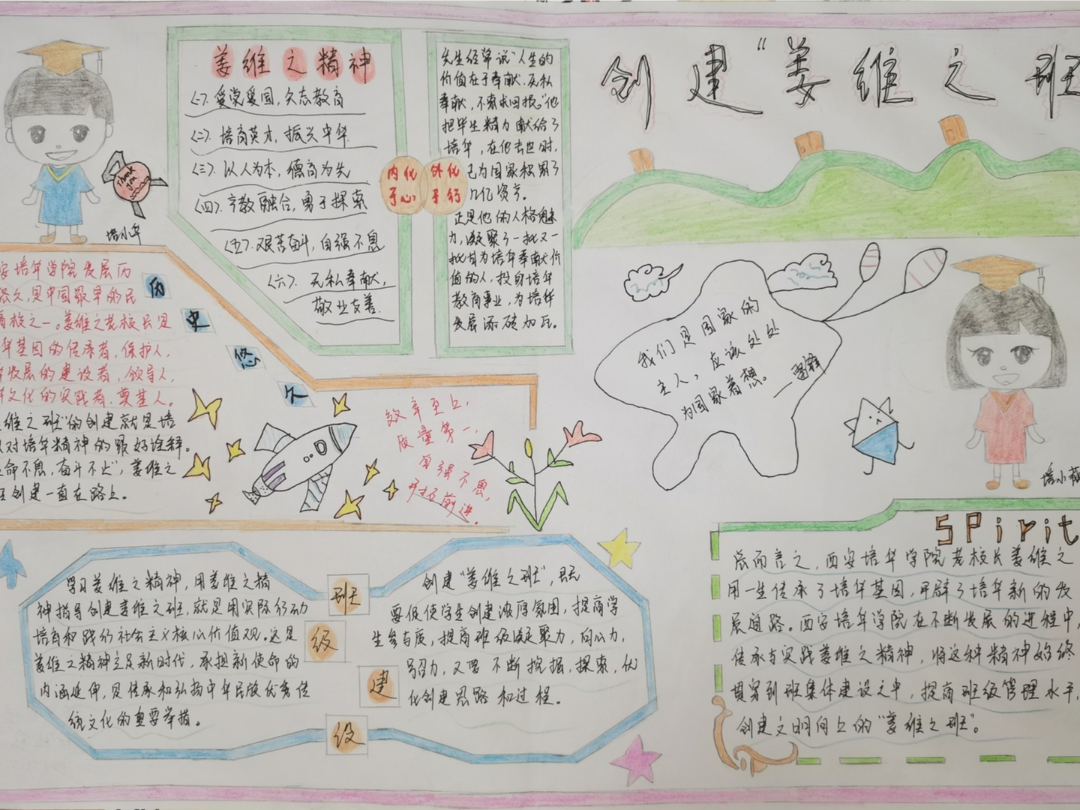 创建"姜维之班
姜维之精神
(一)、爱党爱国,矢志教育
(二)、培育英才,振兴中华
(三)、以人为本,德育为先
(四)、产教融合,勇于探索
(五)、艰苦奋斗,自强不息
(六)、无私奉献,
敬业友善.
内化
于心
外化
于行
先生经常说"人生的
价值在于奉献.无私
奉献,不求回报"他
把毕生精力献给了
培华,在他去世时,
已为国家积累了
几亿资产。
正是他的人格魅
力,凝聚了一批又一
批甘为培华奉献价
值的人,投身培华
教育事业,为培华
发展添砖加瓦。
Thank
you
培小华
历
史
悠
久
培华学院发展历
史悠久,是中国最早的民
高校之一。姜维之老校长是
华基因的传承者,保护人,
发展的建设者,领导人,
文化的实践者,奠基人。
维之班"的创建就是培
对培华精神的最好诠释.
生命不息,奋斗不止",姜维之
班创建一直在路上。
效率至上,
质量第一,
自强不息,
开拓前进。
我们是国家的
主人,应该处处
为国家着想。
——雷锋
培小萌
学习姜维之精神,用姜维之精
神指导创建姜维之班,就是用实际行动
培育和践行社会主义核心价值观。这是
姜维之精神立足新时代,承担新使命的
内涵延伸,是传承和弘扬中华民族优秀传
统文化的重要举措。
班
级
建
设
创建"姜维之班",既
要促使学生创建浓厚氛围,提高学
生参与度,提高班级凝聚力,向心力,
号召力,又要不断挖掘,探索,优
化创建思路和过程.
SPirit
总而言之,西安培华学院老校长姜维之
用一生传承了培华基因,开辟了培华新的发
展道路。西安培华学院在不断发展的进程中,
传承与实践姜维之精神,将这种精神始终
贯穿到班集体建设之中,提高班级管理水平,
创建文明向上的"姜维之班".